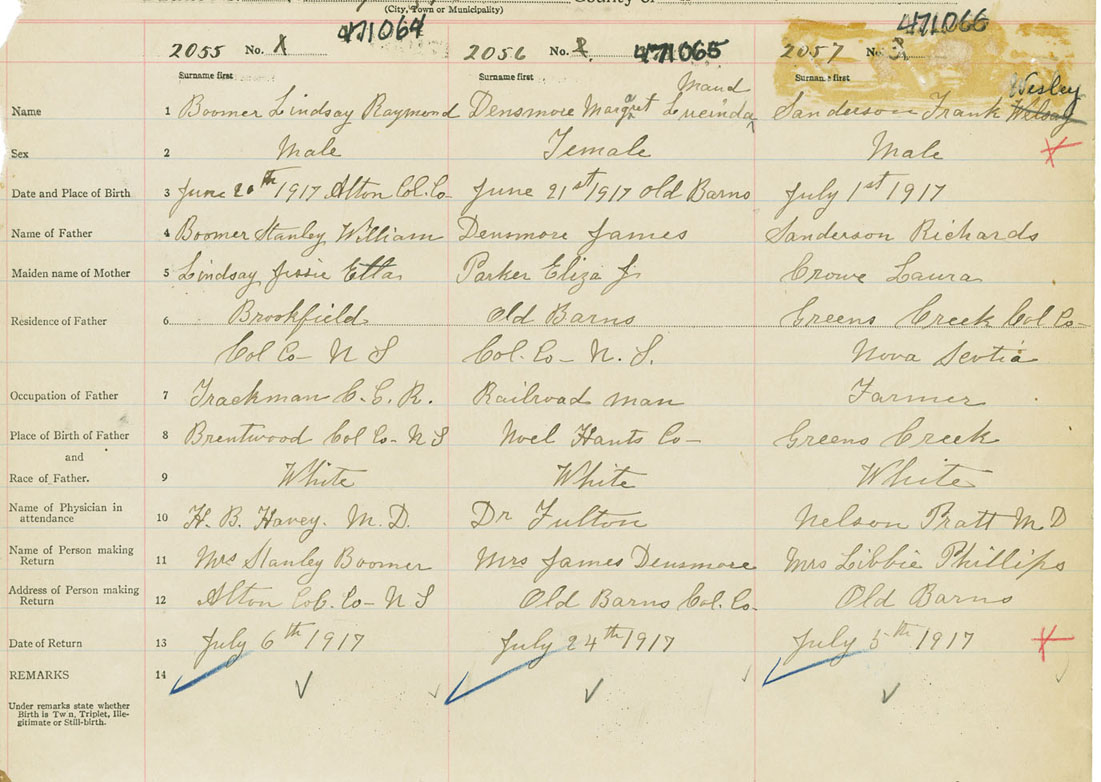 County of
(City, Town or Municipality)
471064 471065 471066
2055 No. 2056 No. 2057 No.
Surname first Surname first Surname first
Maud Wesley
Name 1 Boomer Lindsay Raymond Densmore Margret Lucinda Sanderson Frank Welsay
Sex 2 Male Female Male
Date and Place of Birth 3 June 20th 1917 Alton Col. Co- June 21st 1917 Old Barns July 1st 1917
Name of Father 4 Boomer Stanley William Densmore James Sanderson Richards
Maiden name of Mother 5 Lindsay Jessie Etta Parker Eliza J Crowe Laura
Residence of Father 6 Brookfield Old Barns Greens Creek Col Co-
Col Co- N S Col. Co- N. S. Nova Scotia
Occupation of Father 7 Trackman C. G. R. Railroad man Farmer
Place of Birth of Father 8 Brentwood Col Co- N S Noel Hants Co- Greens Creek
and
Race of Father. 9 White White White
Name of Physician in
attendance 10 H. B. Havey. M. D. Dr Fulton Nelson Pratt M D
Name of Person making
Return 11 Mrs Stanley Boomer Mrs James Densmore Mrs Libbie Phillips
Address of Person making
Return 12 Alton Col. Co- N S Old Barns Col. Co. Old Barns
Date of Return 13 July 6th 1917 July 24th 1917 July 5th 1917
REMARKS 14
Under remarks state whether
Birth is Tw n, Triplet, Ille-
gitimate or Still-birth.